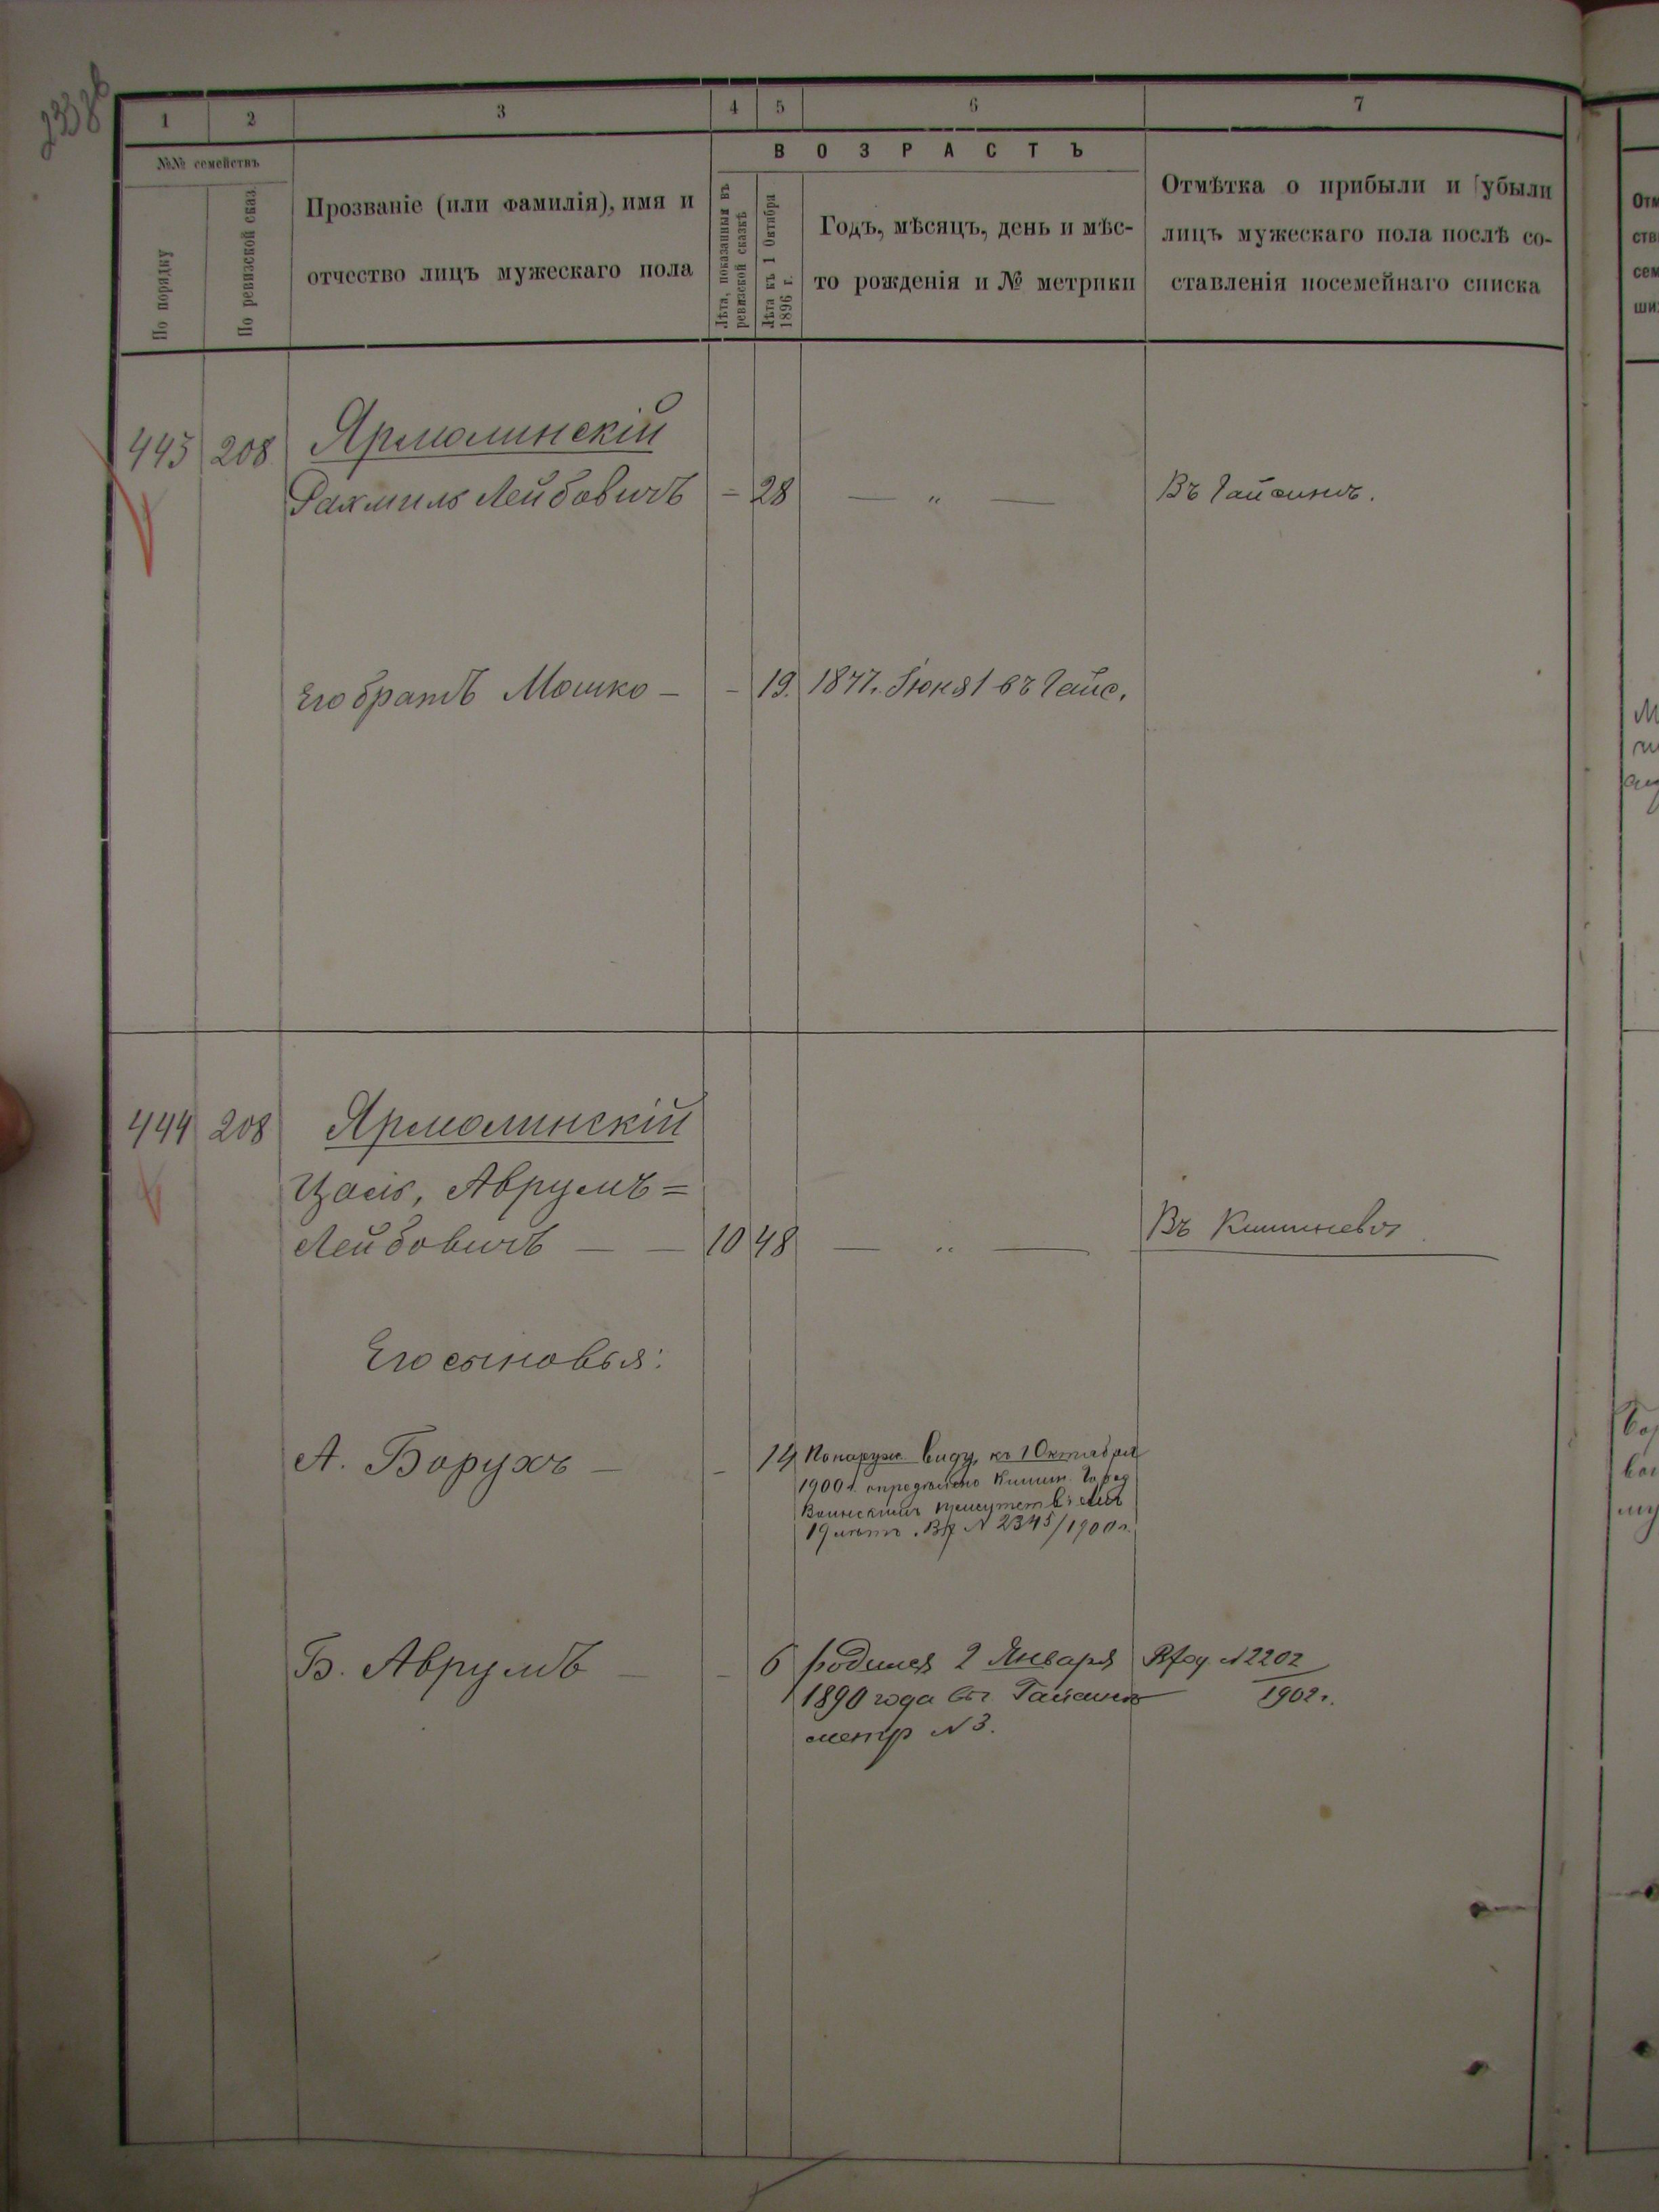 1 2 3 4 5 6 7
№№ семействъ
По порядку
По ревизской сказ.
Прозваніе (или фамилія), имя и
отчество лицъ мужескаго пола
ВОЗРАСТЪ
Лѣта, показанныя въ
ревизской сказкѣ
Лѣта къ 1 Октября
1896 г.
Годъ, мѣсяцъ, день и мѣс-
то рожденія и № метрики
Отмѣтка о прибыли и убыли
лицъ мужескаго пола послѣ со-
ставленія посемейнаго списка
443 208 Ярмолинскій
Рахмиль Лейбовичъ - 28 — " — Въ Гайсинѣ.
Его братъ Мошко — - 19. 1877. Іюня 1 въ Гайс.
444 208 Ярмолинскій
Цаль, Аврумъ=
Лейбовичъ — — 10 48 — " — Въ Кишиневѣ
Его сыновья:
А. Борухъ — - 14 По наружн. виду, къ 1 Октября
1900 г. опредѣлено Кишин. Город
Воинскимъ Присутств:
19 лѣтъ. Вх N 2345/1900 г.
Б. Аврумъ — - 6 родился 2 Января
1890 года въ г. Гайсинѣ
метр N 3.
N 2202
1902 г.